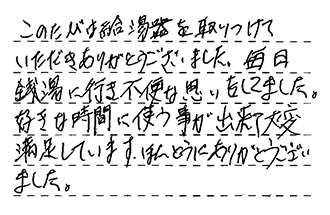 このたびは給湯器を取りつけて
いただきありがとうございました。毎日
銭湯に行き不便な思いをしてました。
好きな時間に使う事が出来て大変
満足しています。ほんとうにありがとうござい
ました。